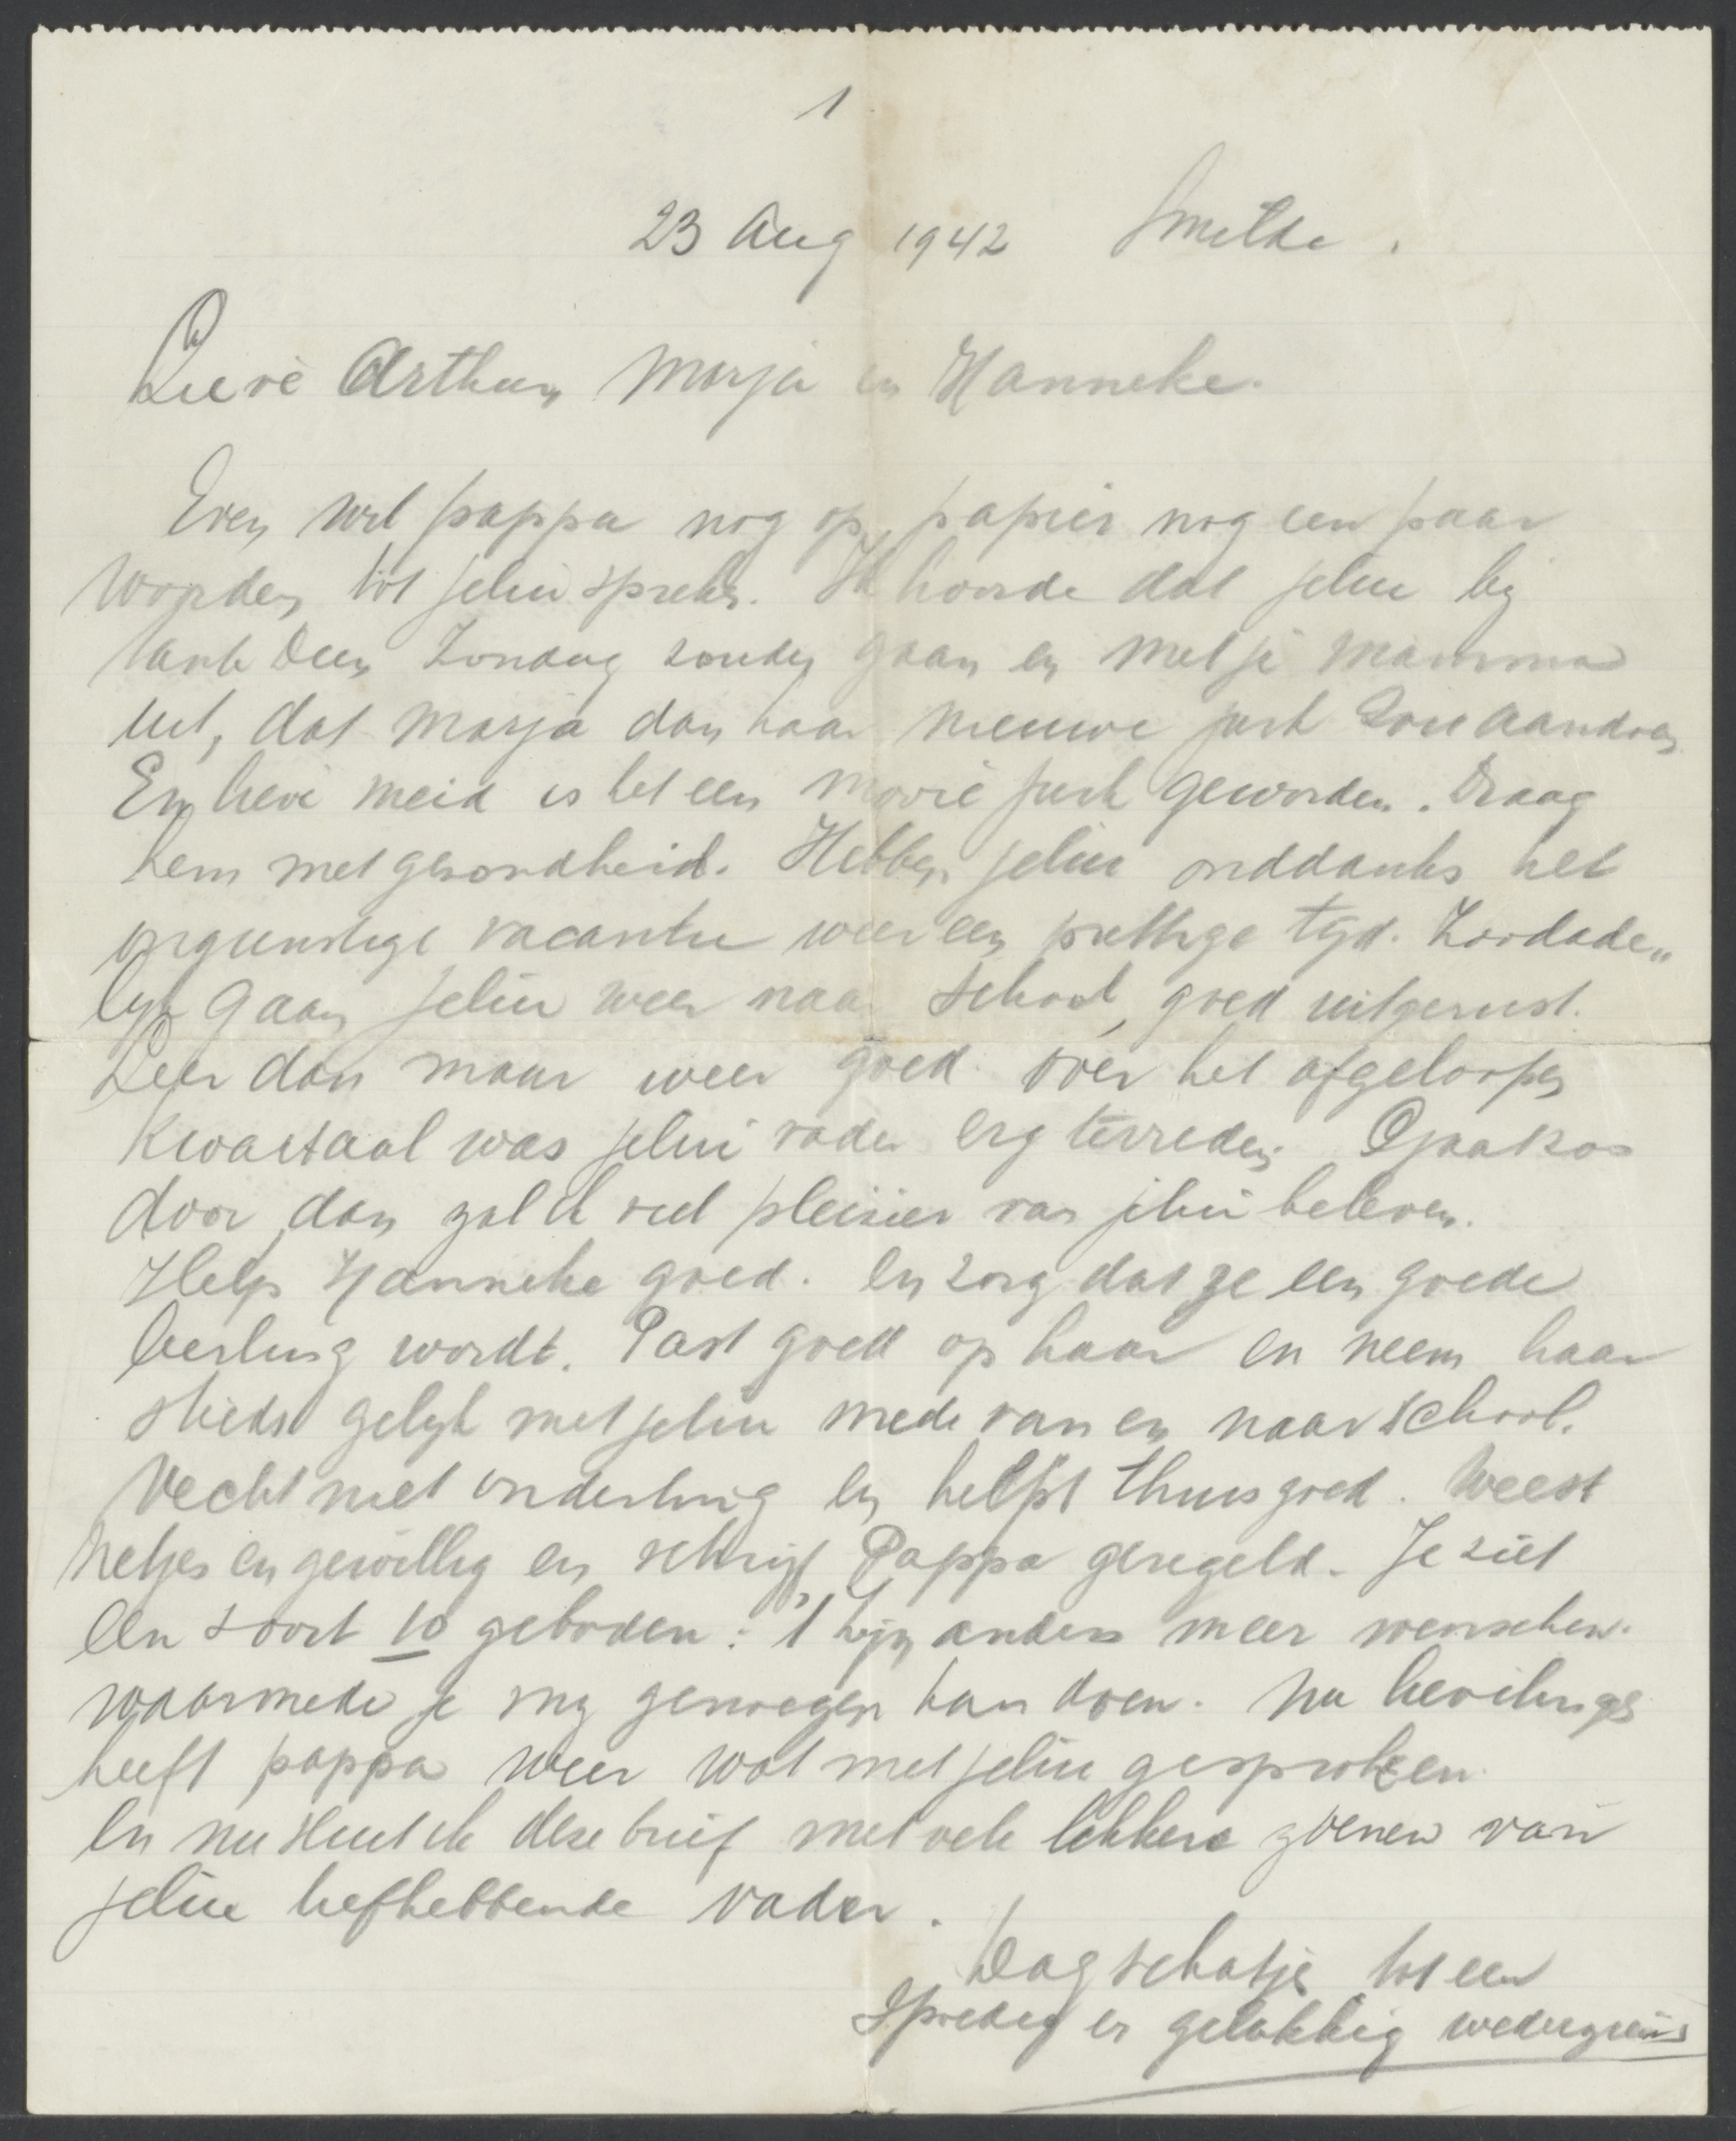 1
23 Aug 1942 Smilde.
Lieve Arthur, Marja en Hanneke.
Even wil pappa nog op papier nog een paar
woorden tot jelui spreken. Ik hoorde dat jelui bij
tante Zondag zouden gaan en met je mamma
uit, dat Marja dan haar nieuwe jurk zou aandoen
En lieve meid is het een mooie jurk geworden. Draag
hem met gezondheid. Hebben jelui onddanks het
ongunstige vacantie weer een prettige tijd. Zoodade„
lijk gaan jelui weer naar school, goed uitgerust.
Leer dan maar weer goed. over het afgeloopen
kwartaal was jelui vader erg tevreden. Ga zoo
door, dan zal ik veel pleisier van jelui beleven.
Help Hanneke goed. en zorg dat ze een goede
leerling wordt. Past goed op haar en neem haar
steeds gelijk met jelui mede van en naar school.
Vecht niet onderling en helpt thuis goed. Weest
netjes en gewillig en schrijf Pappa geregeld. Je ziet
een soort 10 geboden: 't zijn anders meer wenschen.
waarmede je mij genoegen kan doen. Nu lievelings
heeft pappa weer wat met jelui gesproken.
En nu sluit ik deze brief met vele lekkere zoenen van
jelui liefhebbende vader.
Dag schatjes tot een
spoedig en gelukkig wederziens